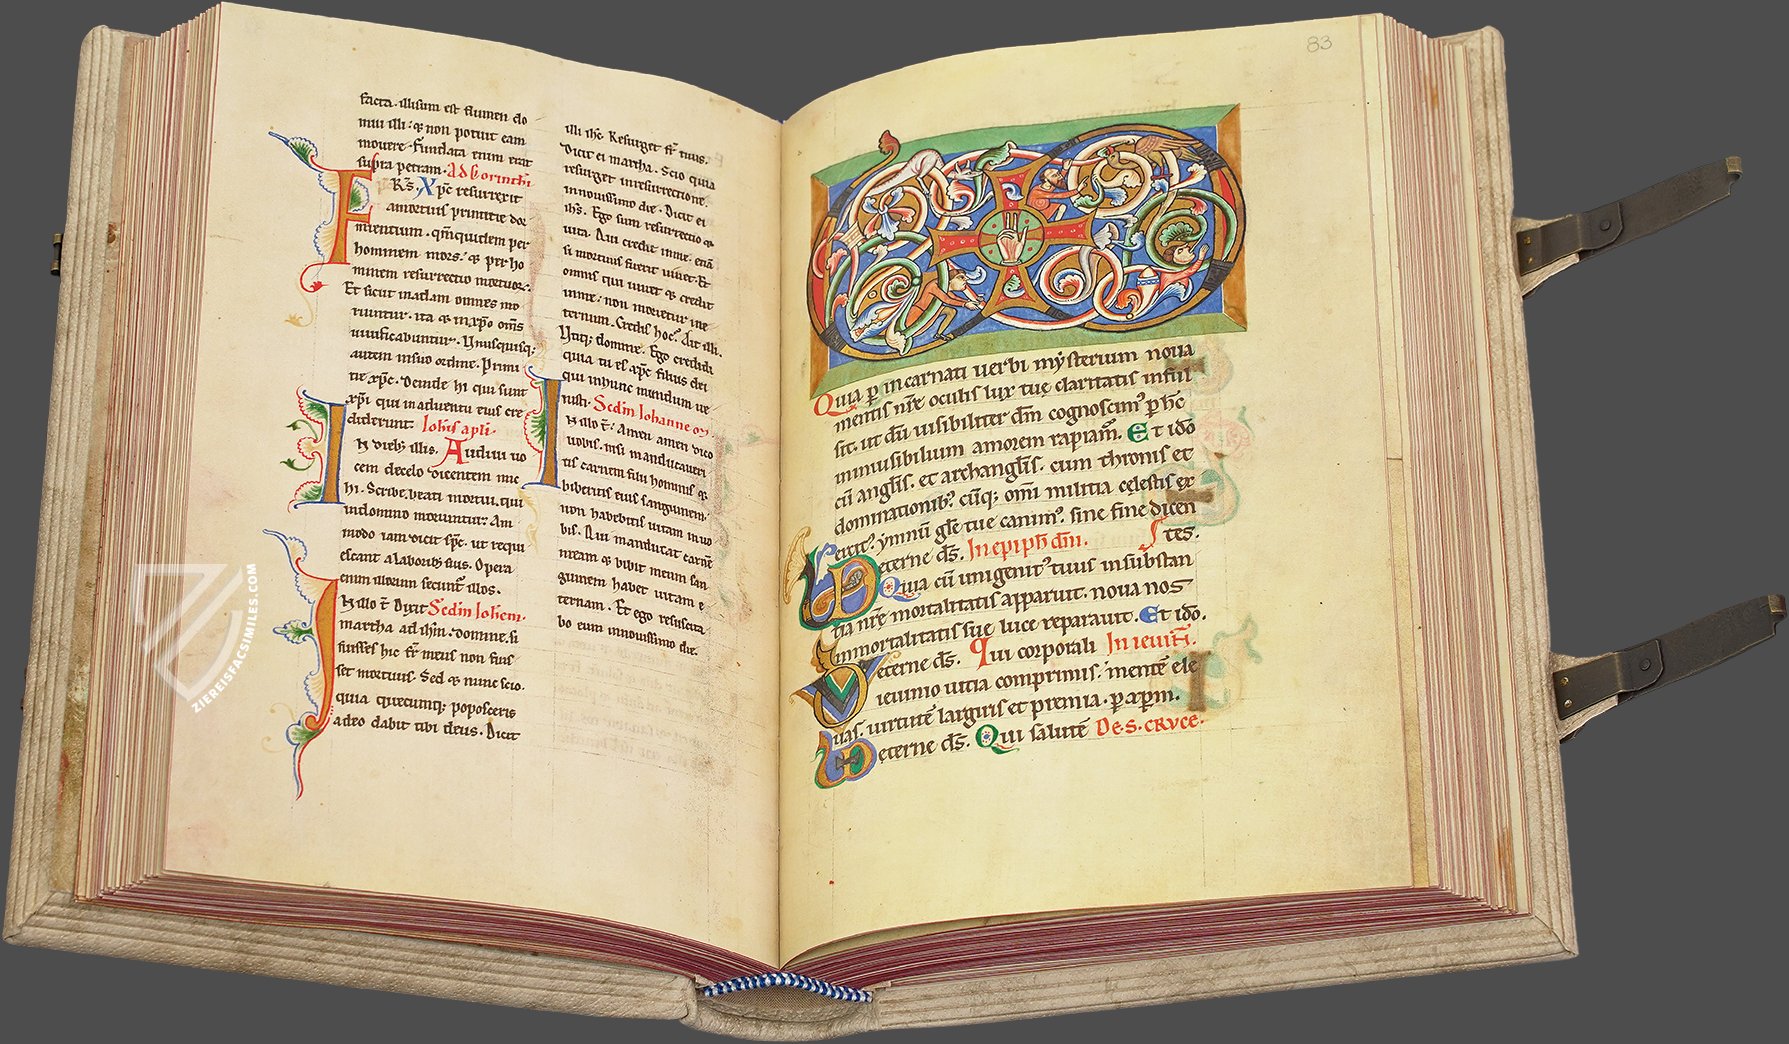 facta. illisum est flumen do
mui illi: & non potuit eam
movere. fundata enim erat
supra petram. Ad Corinthi
Frs. Xpc resurrexit
amortuis primitie dor
mientium. qmquidem per
hominem mors: & per ho
minem resurrectio mortuor.
Et sicut inadam omnes mo
riuntur. ita & inxpo oms
uiuificabuntur. Unusquisq;
autem insuo ordine. Primi
tie xpc. Deinde hi qui sunt
xpi qui inaduentu eius cre
diderunt. Iohis apli.
In dieb; illis. Audiui uo
cem decelo dicentem mic
hi. Scribe. beati mortui. qui
indomino moriuntur. Am
modo iam dicit spc. ut requi
escant alaborib; suis. Opera
enim illorum secunt illos.
In illo t. Dixit Scdm Iohem.
martha ad ihm. domine. si
fuisses hic fr meus non fuis
set mortuus. Sed & nunc scio.
quia quecumq; poposceris
adeo dabit tibi deus. Dicit
illi ihc. Resurget fr tuus.
Dicit ei martha. Scio quia
resurget inresurrectione.
innouissimo die. Dicit ei
ihs. Ego sum resurrectio &
uita. Qui credit inme. etia
si mortuus fuerit uiuet. Et
omnis qui uiuit & credit
inme: non morietur ine
ternum. Credis hoc? Ait illi.
Utiq; domine. Ego credidi
quia tu es xpc filius dei
qui inhunc mundum ue
nisti. Scdm Iohanne
In illo t. Amen amen dico
uobis. nisi manducaueri
tis carnem filii hominis &
biberitis eius sanguinem.
non habebitis uitam inuo
bis. Qui manducat carne
meam & bibit meum san
guinem habet uitam e
ternam. Et ego resuscita
bo eum innouissimo die.
83
Quia p incarnati uerbi mysterium noua
mentis nre oculis lux tue claritatis inful
sit. ut du uisibiliter dm cognoscim. p hc
inuisibilium amorem rapiam. Et ido
cu anglis. et archanglis. cum thronis et
dominationib; cuq; omi militia celestis ex
ercit. ymnu gle tue canim. sine fine dicen
tes.
Eterne ds. In epiph dni.
Quia cu unigenit tuus insubstan
tia nre mortalitatis apparuit. noua nos
inmortalitatis sue luce reparauit. Et ido.
Eterne ds. Qui corporali In ieiun.
ieiunio uitia comprimis. mente ele
uas. uirtute largiris et premia. p xpm.
Eterne ds. Qui salute De. S. CRVCE.
ZIEREISFACSIMILES.COM